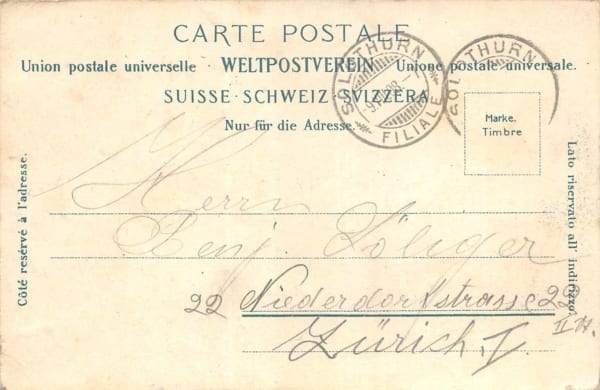 CARTE POSTALE
Union postale universelle • WELTPOSTVEREIN • Unione postale universale.
SUISSE • SCHWEIZ • SVIZZERA
Nur für die Adresse.
SOLOTHURN
FILIALE
SOLOTHURN
Marke.
Timbre
Côté resérvé à l'adresse.
Lato riservato all' indirizzo
Herrn
Benj. Löliger
22 Niederdorfstrasse 22
II St.
Zürich, I.